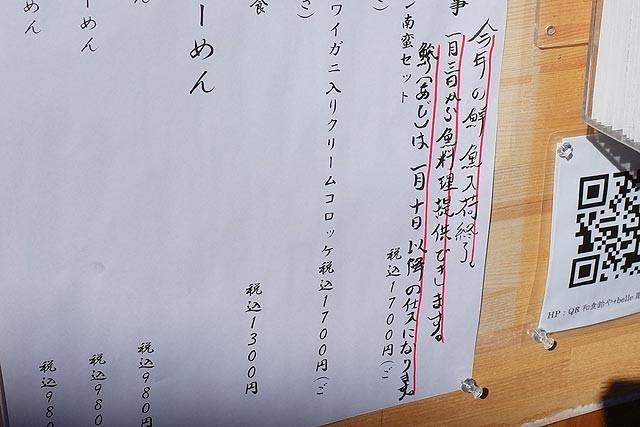 今年の鮮魚入荷終了。
一月三日から魚料理提供できます。
鯵(あじ)は一月十日以降の仕入になります。
事
ン南蛮セット
税込1700円(ご
ワイガニ入りクリームコロッケ税込1700円(ご
き)
食
税込1300円
ーめん
ん
税込980円
ーめん
税込980
めん
税込980
HP:QR 和食鈴や+belle